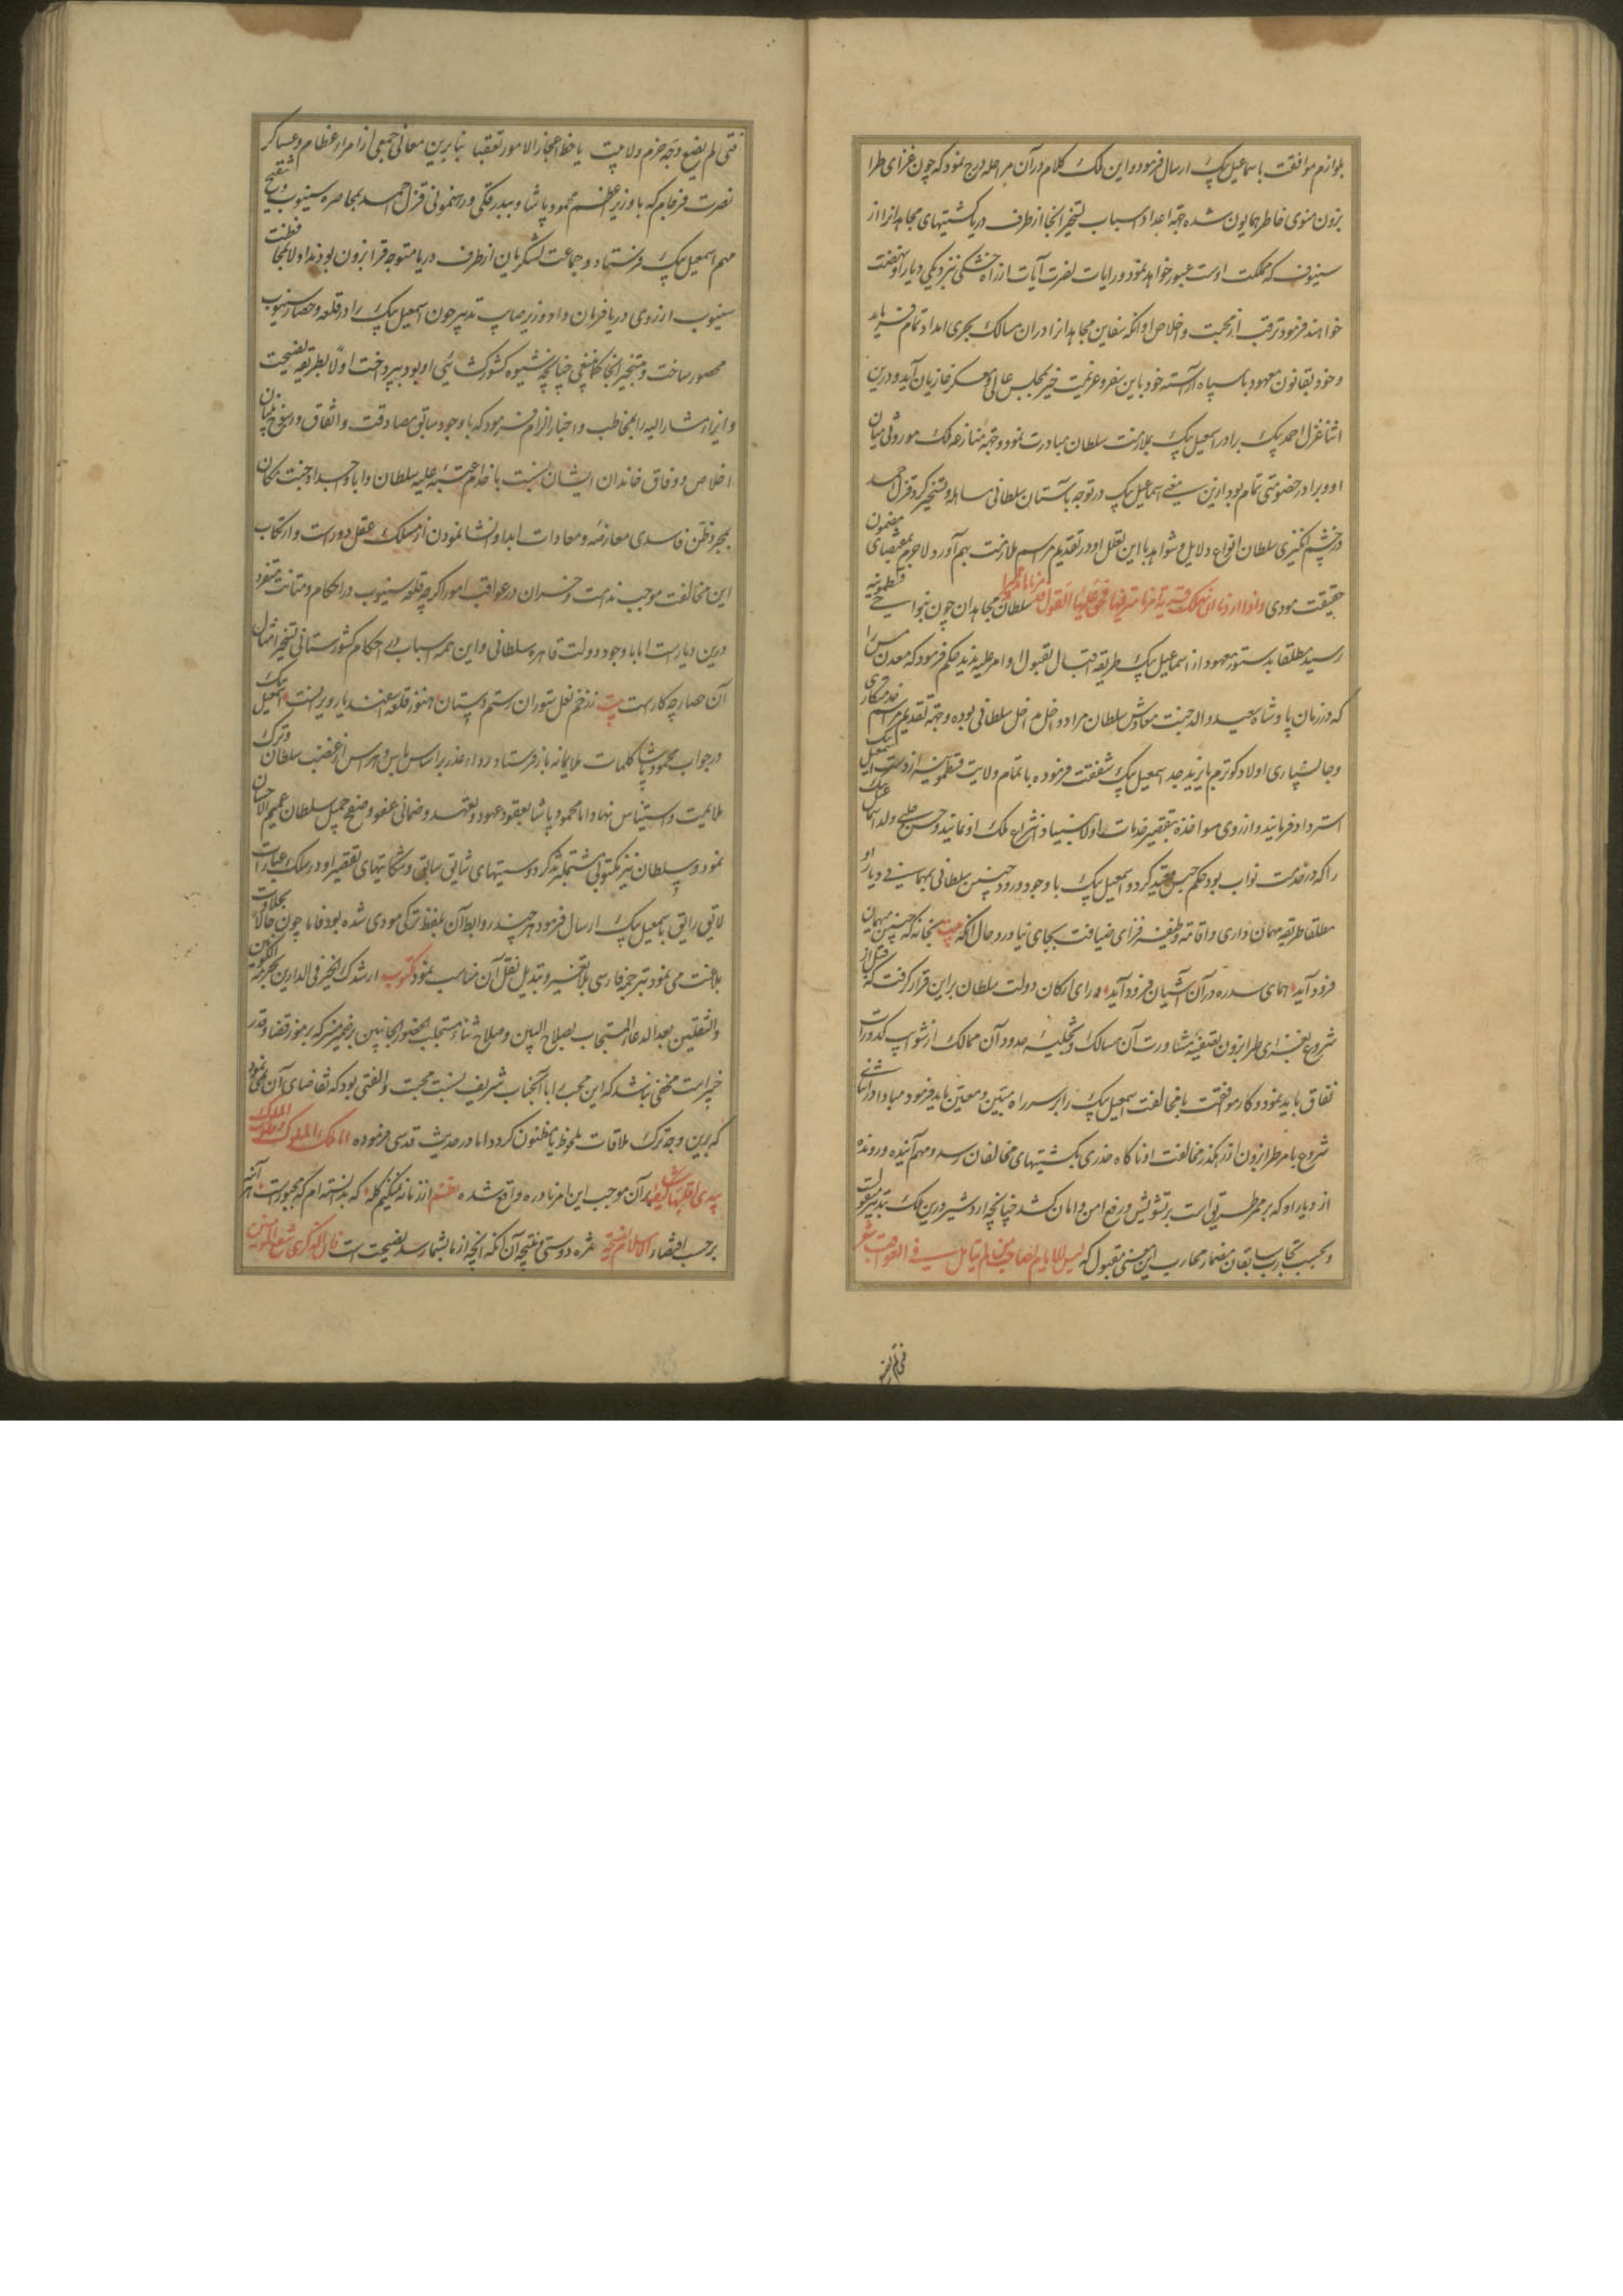 بلوازم موافقت باسماعیل بیک ارسال فرمود و این ملک کلام در آن مراحله درج نمود که چون غزای طرا
بزون منوی خاطر همایون شده جهة اعداد اسباب تسخیر انجا از طرف دریا کشتیهای مجاهدانرا از
سینوب که مملکت اوست عبور خواهد نمود و رایات نصرت آیات از راه خشکی بنزدیکی دیار او نهضت
خواهند فرمود ترقب از محبت و اخلاص او انکه سفاین مجاهدانرا در ان مسالک بحری امداد تمام فرماید
و خود بقانون معهود با سپاه آراسته خود باین سفر و عزیمت خیر بمجلس عالی و معسکر غازیان آید و درین
اثنا قزل احمد بیک برادر اسمعیل بیک بملازمت سلطان مبادرت نمود و جهة منازعه ملک موروثی میان
او و برادر خصومتی تمام بود ازین معنی اسماعیل بیک در توجه باستان سلطانی مساهله و تسخیر کرد قزل احمد
در خشم انگیزی سلطان انواع دلایل و شواهد با این تعلل او در تقدیم مراسم ملازمت بهم آورد و لاجرم بمقتضای مضمون
حقیقت مودی واذا اردنا ان نهلک قریة امرنا مترفیها فحق علیها القول فدمرناها تدمیرا سلطان مجاهدان چون بنواحی قسطمونیه
رسید مطلقا بدستور معهود از اسماعیل بیک طریقه اقبال بقبول اوامر علیه ندید حکم فرمود که معدن مس را
که در زمان پادشاه سعید والد جنت معادش سلطان مراد داخل مداخل سلطانی بوده و جهة تقدیم مراسم خدمتکاری
و جانسپاری اولاد کوترم بایزید جد اسمعیل بیک شفقت فرموده با تمام ولایت قسطمونیه از دست اسمعیل بیک
استرداد فرمایند و از روی مواخذه بتقصیر خدمات اولا بنیاد انتزاع ملک او نمایند و حسن چلبی ولد اسماعیل بیک
را که در خدمت نواب بود حکم حبس و تقید کرد و اسمعیل بیک با وجود ورود چنین سلطانی بمهمانی در دیار او
مطلقا طریقه مهمان داری و اقامة وظیفه فزای ضیافت بجای نیاورد و حال انکه بیت بخانه که چنین میهمان
فرود آید همای سدره در آن آشیان فرود آید و رای ارکان دولت سلطان براین قرار گرفت که قبل از
شروع بغزای طرابزون بتصفیه مشاورت آن مسالک و تخلیه حدود آن ممالک از شوایب کدورات
نفاق باید نمود و کار موافقت یا مخالفت اسمعیل بیک را برسر راه مبین و معین باید فرمود مبادا در اثنای
شروع بامر طرابزون از رهگذر مخالفت او ناگاه خدری بکشتیهای مخالفان رسد و مهم آینده و رونده
از دیار او که بر ممر طریق است بر تشویش و رفع امن و امان کشد چنانچه اردشیر درین ملک بتدبیر
و بحسب تجارب سابقان مضمار محارب این معنی مقبول که لیس للایام بصاحب من لم یتامل فی العواقب شعر
فتی لم یضیع وجه حزم ولا یبیت یلاحظ اعجاز الامور تعقبا بنا برین معانی جمعی از امراء عظام و عساکر
نصرت فرجام که با وزیر اعظم محمود پاشا و ببدرقکی و رهنمونی قزل احمد بمحاصره سینوب و تنقیح
مهم اسمعیل بیک فرستاد و جماعت لشکریان از طرف دریا متوجه قرابزون بودند اولا بمحافظت
سینوب از روی دریا فرمان داد وزیر صایب تدبیر چون اسمعیل بیک را در قلعه و حصار سینوب
محصور ساخت و بتسخیر انجا کما ینبغی چنانچه شیوه کشورکشائی او بود بپرداخت اولا بطریقه نصیحت
و ابراء مشار الیه را مخاطب و اخبار الزام فرمود که با وجود سابق مصادقت و اتفاق و رسوخ بنیان
اخلاص و وفاق خاندان ایشان نسبت با خدام عتبه علیه سلطان و ابا و اجداد جنت مکان
بمجرد ظن فاسدی معارضه و معادات ابدا و انشا نمودن از مسلک عقل دورست و ارتکاب
این مخالفت موجب ندامت و خسران در عواقب امور اگرچه قلعه سینوب در احکام و متانت متفرد
درین دیارست اما با وجود دولت قاهره سلطانی و این همه اسباب و احکام کشورستانی تسخیر امثال
آن حصار چه کارست بیت ز زخم نعل ستوران رستم دستان هنوز قلعه اسفندیار ویرانست اسمعیل بیک
در جواب محمود پاشا کلمات ملایمانه باز فرستاد و رداء عذر بر اساس باس و هراس از غضب سلطان و ترک
ملایمت و استیناس نهاد اما محمود پاشا بعقود عهود و تعهد و ضمانی عفو و صفح جمیل سلطان عمیم الاحسان
نمود و سلطان نیز مکتوبی مشتمل بذکر دوستیهای شایق سابق و شکایتهای تقصیر او در سلک عبارات
لایق رایق باسمعیل بیک ارسال فرمود هرچند روابط آن بلفظ ترکی مودی شده بود فاما چون حالا بحلاوت
بلاغت می نمود بترجمه فارسی بلا تغییر و تبدیل نقل آن مناسب نمود مکتوب ارشدک الخیر فی الدارین بحرمة الکونین
والثقلین بعد الدعاء المستجاب بصلاح البین و صلاح ثناء مستجلب الحضور الجانبین بر ضمیر منیر که برموز قضا و قدر
خبیر است مخفی نباشد که این محب را با آنجناب شریف نسبت محبت و الفتی بود که تقاضای آن نمی نمود
که برین وجه ترک ملاقات ملحوظ یا مظنون کردد اما در حدیث قدسی فرموده انا ملک الملوک قلوب الملوک
بیدی اقلبها کیف اشاء بر آن موجب این امر نادره واقع شده نظم از زمانه نمیکنم گله که بدانسته ام که مجبورست
برحسب اقتضاء الاسلام النصیحة ثمره دوستی و نتیجه آن آنکه آنچه از ما بشما رسد نصیحت است فان الذکری تنفع المؤمنین
فتی لم یضیع